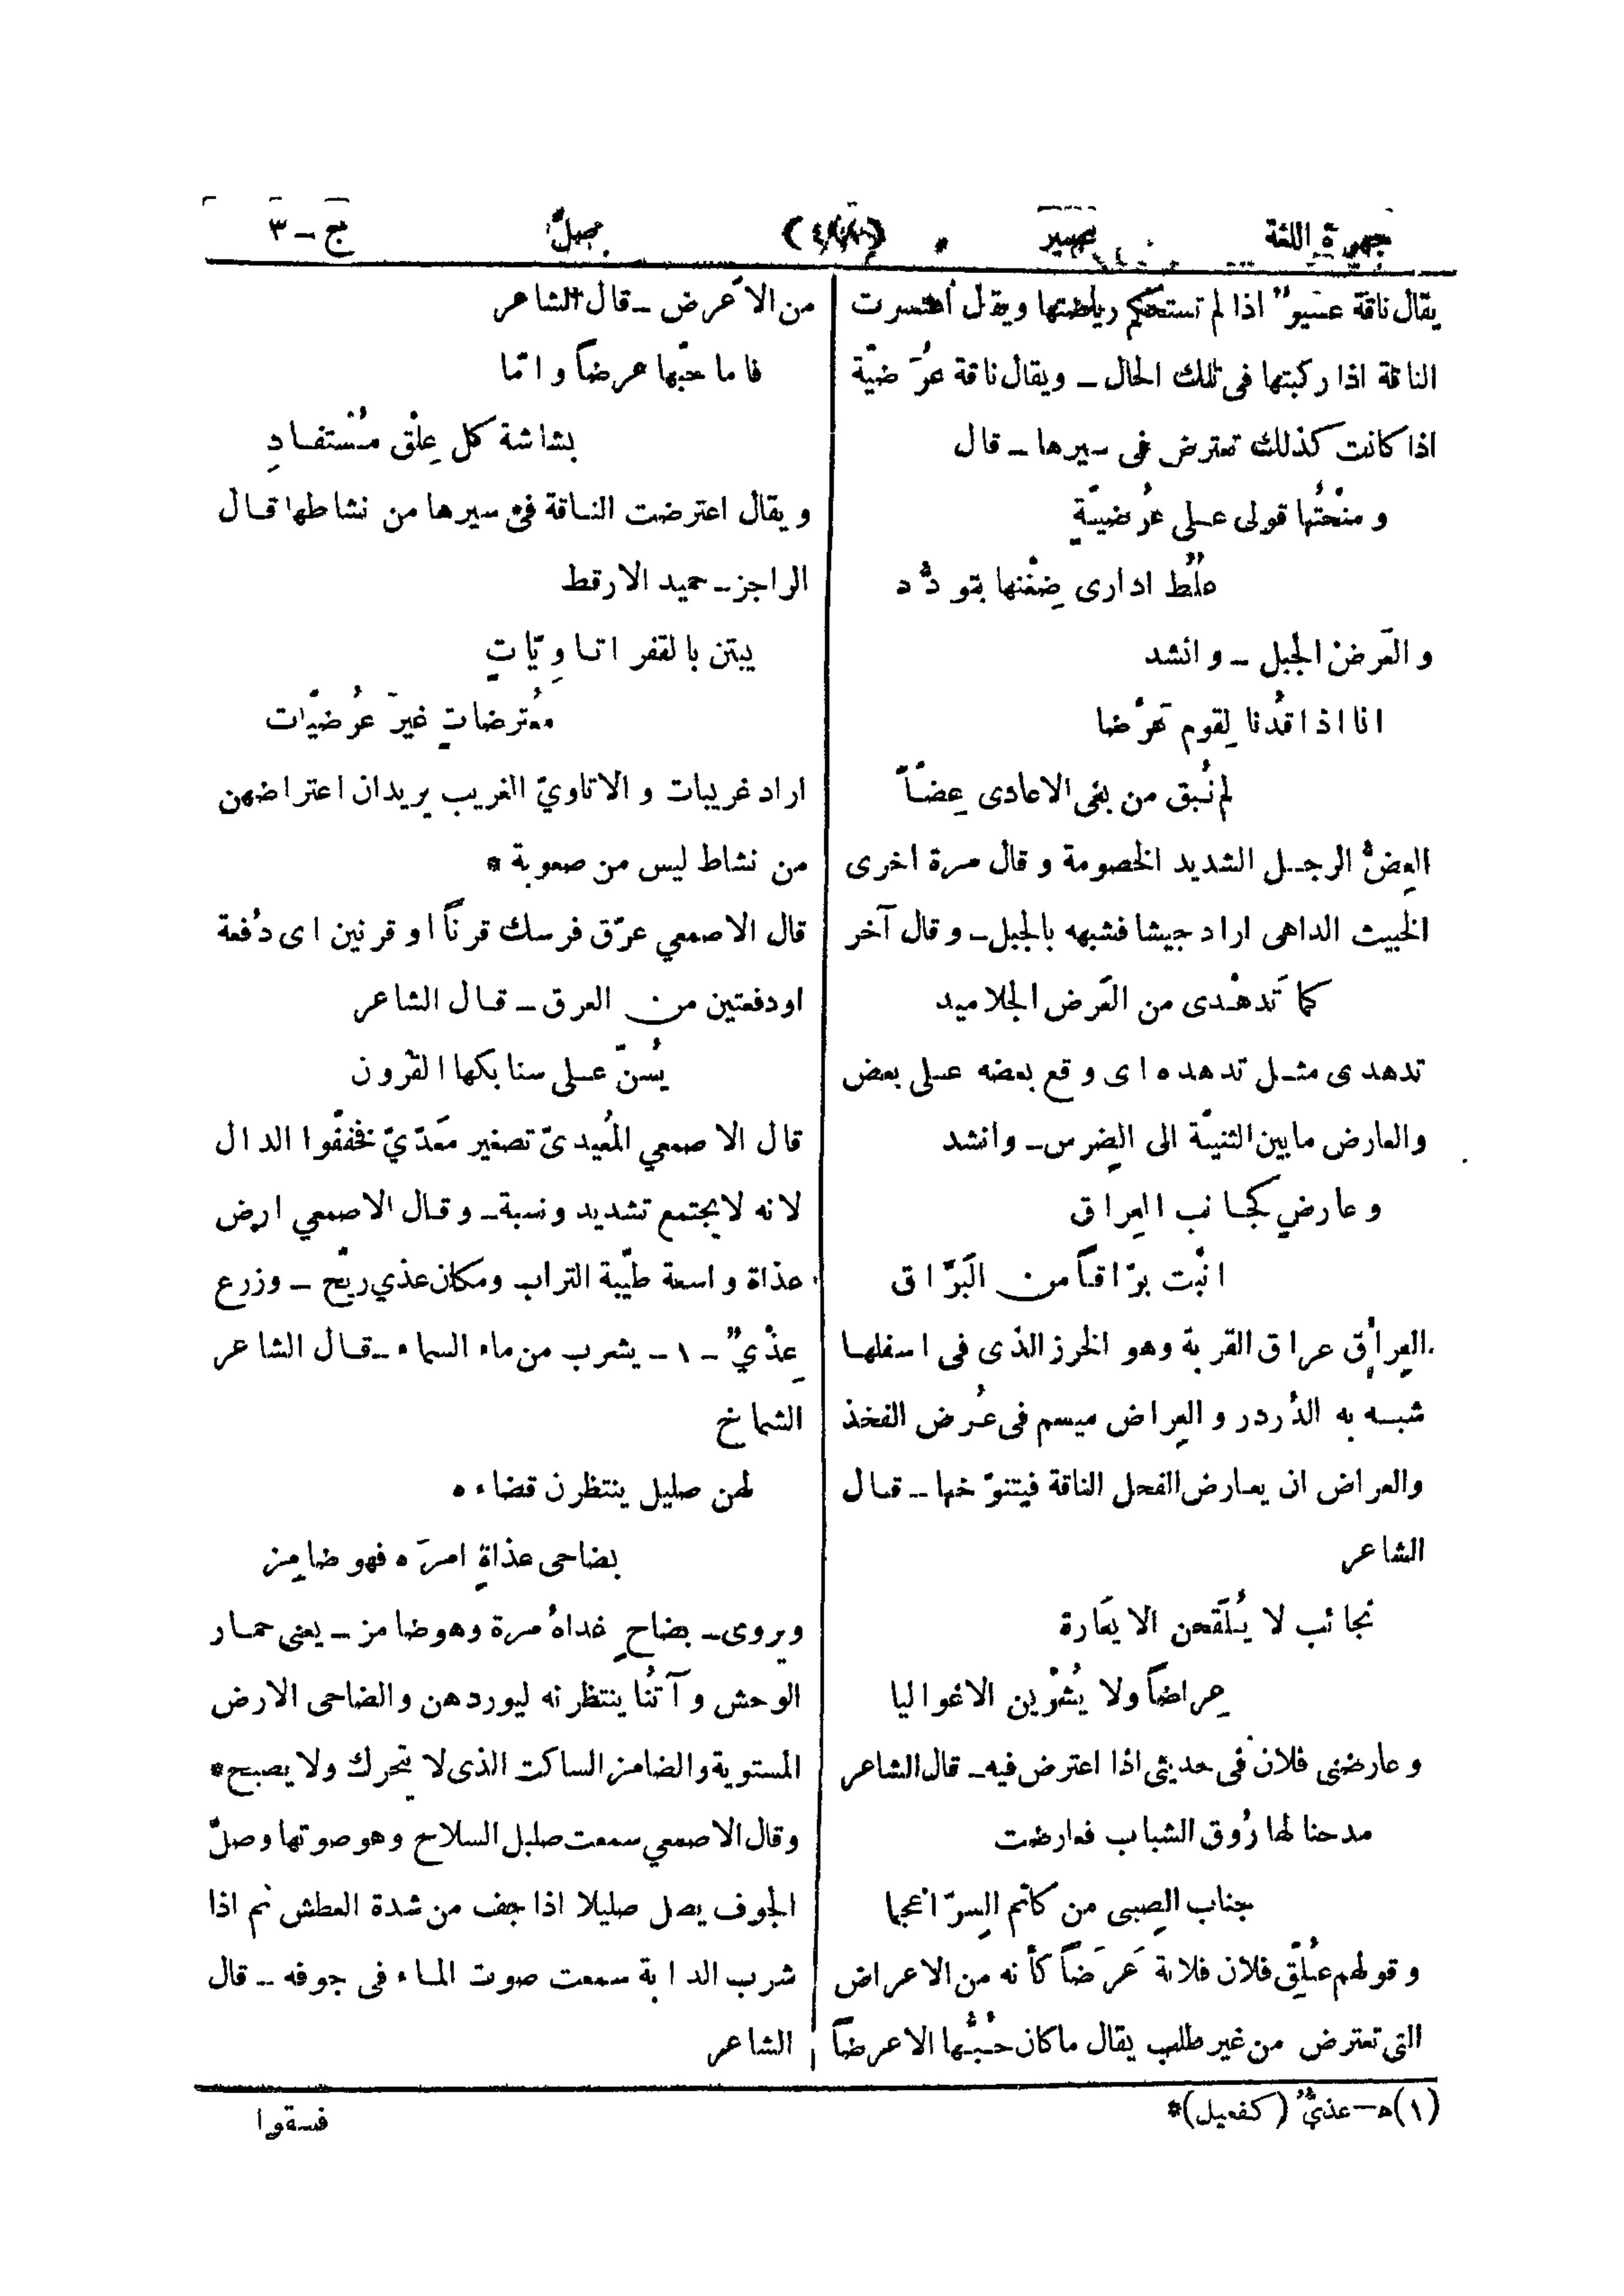 جمهرة اللغة
عسير
صلّ
ج – ٣
يقال ناقة عسيرٌ اذا لم تستحكم رياضتها ويقال أعتسرت
الناقة اذا ركبتها فى تلك الحال – ويقال ناقة عُرَضيّة
اذا كانت كذلك تعترض فى سيرها – قال
ومنحْتُها قولى على عُرْضيّةٍ
عُلُطٍ ادارى ضِغْنها بتودُّد
والعَرضْ الجبل – وانشد
انا اذا قُدْنا لِقوم عَرْضا
لم نُبق من بغى الاعادى عِضّاً
العِضّ الرجل الشديد الخصومة وقال مرة اخرى
الخبيث الداهى اراد جيشا فشبهه بالجبل – وقال آخر
كما تَدهْدى من العَرض الجلاميد
تدهدى مثل تدهده اى وقع بعضه على بعض
والعارض مابين الثنيّة الى الضِرس – وانشد
وعارضٍ كجانب العِراق
انْبت برّاقاً من البَرّاق
العِراق عراق القربة وهو الخرز الذى فى اسفلها
شبه به الدُردر والعِراض ميسم فى عُرض الفخذ
والعراض ان يعارض الفحل الناقة فيتنوّخها – قال
الشاعر
نجائب لا يُلقَحن الا يَعارة
عِراضاً ولا يُشرْين الاغواليا
وعارضنى فلان فى حديثى اذا اعترض فيه – قال الشاعر
مدحنا لها رُوق الشباب فعارضت
جناب الصِبى من كاتم السِرّ اعجما
وقولهم عُلِّق فلان فلانة عَرَضاً كأنه من الاعراض
التى تعترض من غير طلب يقال ماكان حُبُّها الاعرضاً
من الأعرض – قال الشاعر
فاما حبّها عرضاً وامّا
بشاشة كل عِلْق مُسْتفادِ
ويقال اعترضت الناقة فى سيرها من نشاطها قال
الراجز – حميد الارقط
يبتن بالقفر اتاوِيّاتٍ
مُعترضاتٍ غيرَ عُرْضيّات
اراد غريبات والاتاويّ الغريب يريدان اعتراضهن
من نشاط ليس من صعوبة *
قال الاصمعي عرّق فرسك قرناً او قرنين اى دُفعة
اودفعتين من العرق – قال الشاعر
يُسنّ على سنابكها القرون
قال الاصمعي المُعيدىّ تصغير مَعَدّيّ خففوا الدال
لانه لايجتمع تشديد ونسبة – وقال الاصمعي ارض
عذاة واسعة طيّبة التراب ومكان عذي ريّح – وزرع
عِذْيٌ – ١ – يشرب من ماء السماء – قال الشاعر
الشماخ
لهن صليل ينتظرن قضاءه
بضاحى عذاةٍ امرَه فهو ضامِز
ويروى – بضاحٍ غداهُ مرة وهوضامز – يعنى حمار
الوحش وآتُنا ينتظرنه ليوردهن والضاحى الارض
المستوية والضامز الساكت الذى لا يتحرك ولا يصيح *
وقال الاصمعي سمعت صليل السلاح وهو صوتها وصلّ
الجوف يصل صليلا اذا جف من شدة العطش ثم اذا
شرب الدابة سمعت صوت الماء فى جوفه – قال
الشاعر
(١) ه – عذيٌّ (كفعيل) *
فسقوا